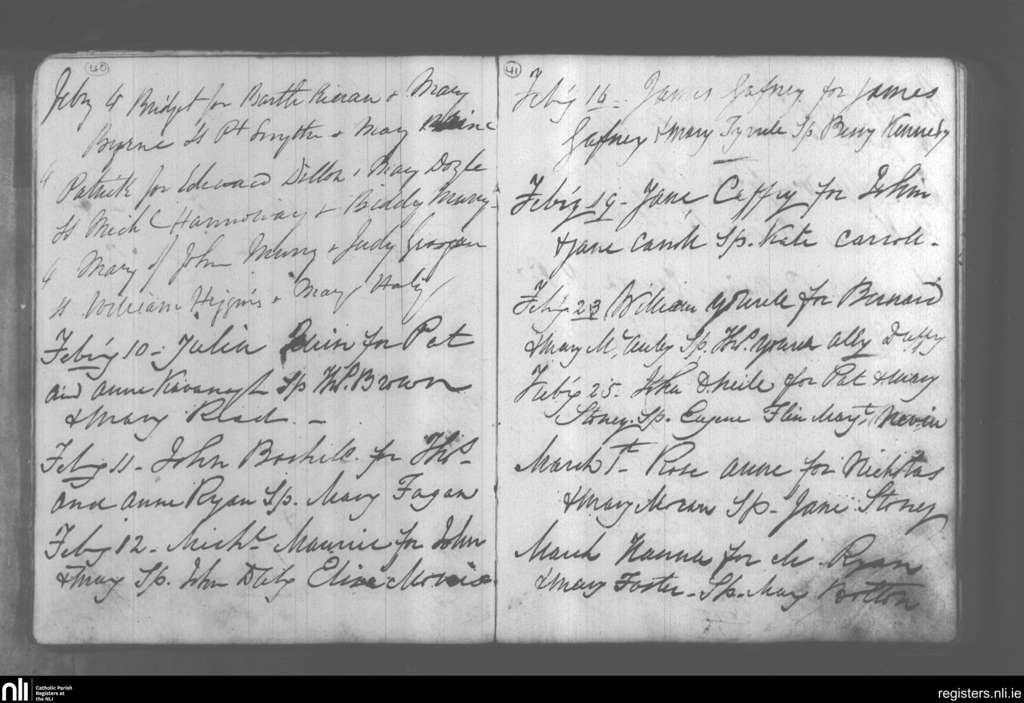 40
Feb'y 4 Bridget for Barth Kieran & Mary
Byrne Ss Pt Smythe & Mary
4 Patrick for Edward Dillon & Mary Doyle
Ss Mich Hannoway & Biddy Murry
4 Mary of John Murry & Judy
Ss William Higgins & Mary Haly
Feb'y 10 - Julia for Pat
and Anne Kavanagh Sp Ths. Brown
& Mary Read. -
Feb'y 11 - John for Ths.
and Anne Ryan Sp. Mary Fagan
Feb'y 12 - Michl. for John
& Mary Sp. John Daly Eliza Morris
41
Feb'y 16 - James Gafney for James
Gafney & Mary Tyrrele Sp Kennedy
Feb'y 19 - Jane Caffry for John
& Jane Carroll Sp. Kate Carroll -
Feb'y 23 William for Bernard
& Mary Sp. Ths. Ally Duffy
Feb'y 25 - for Pat & Mary
Stoney. Sp. Eugene Mary
March 1st. Rose Anne for Nicholas
& Mary Moran Sp - Jane Stoney
March Hanna for M. Ryan
& Mary Foster - Sp. Mary Bolton
nli Catholic Parish
Registers at
the NLI
registers.nli.ie